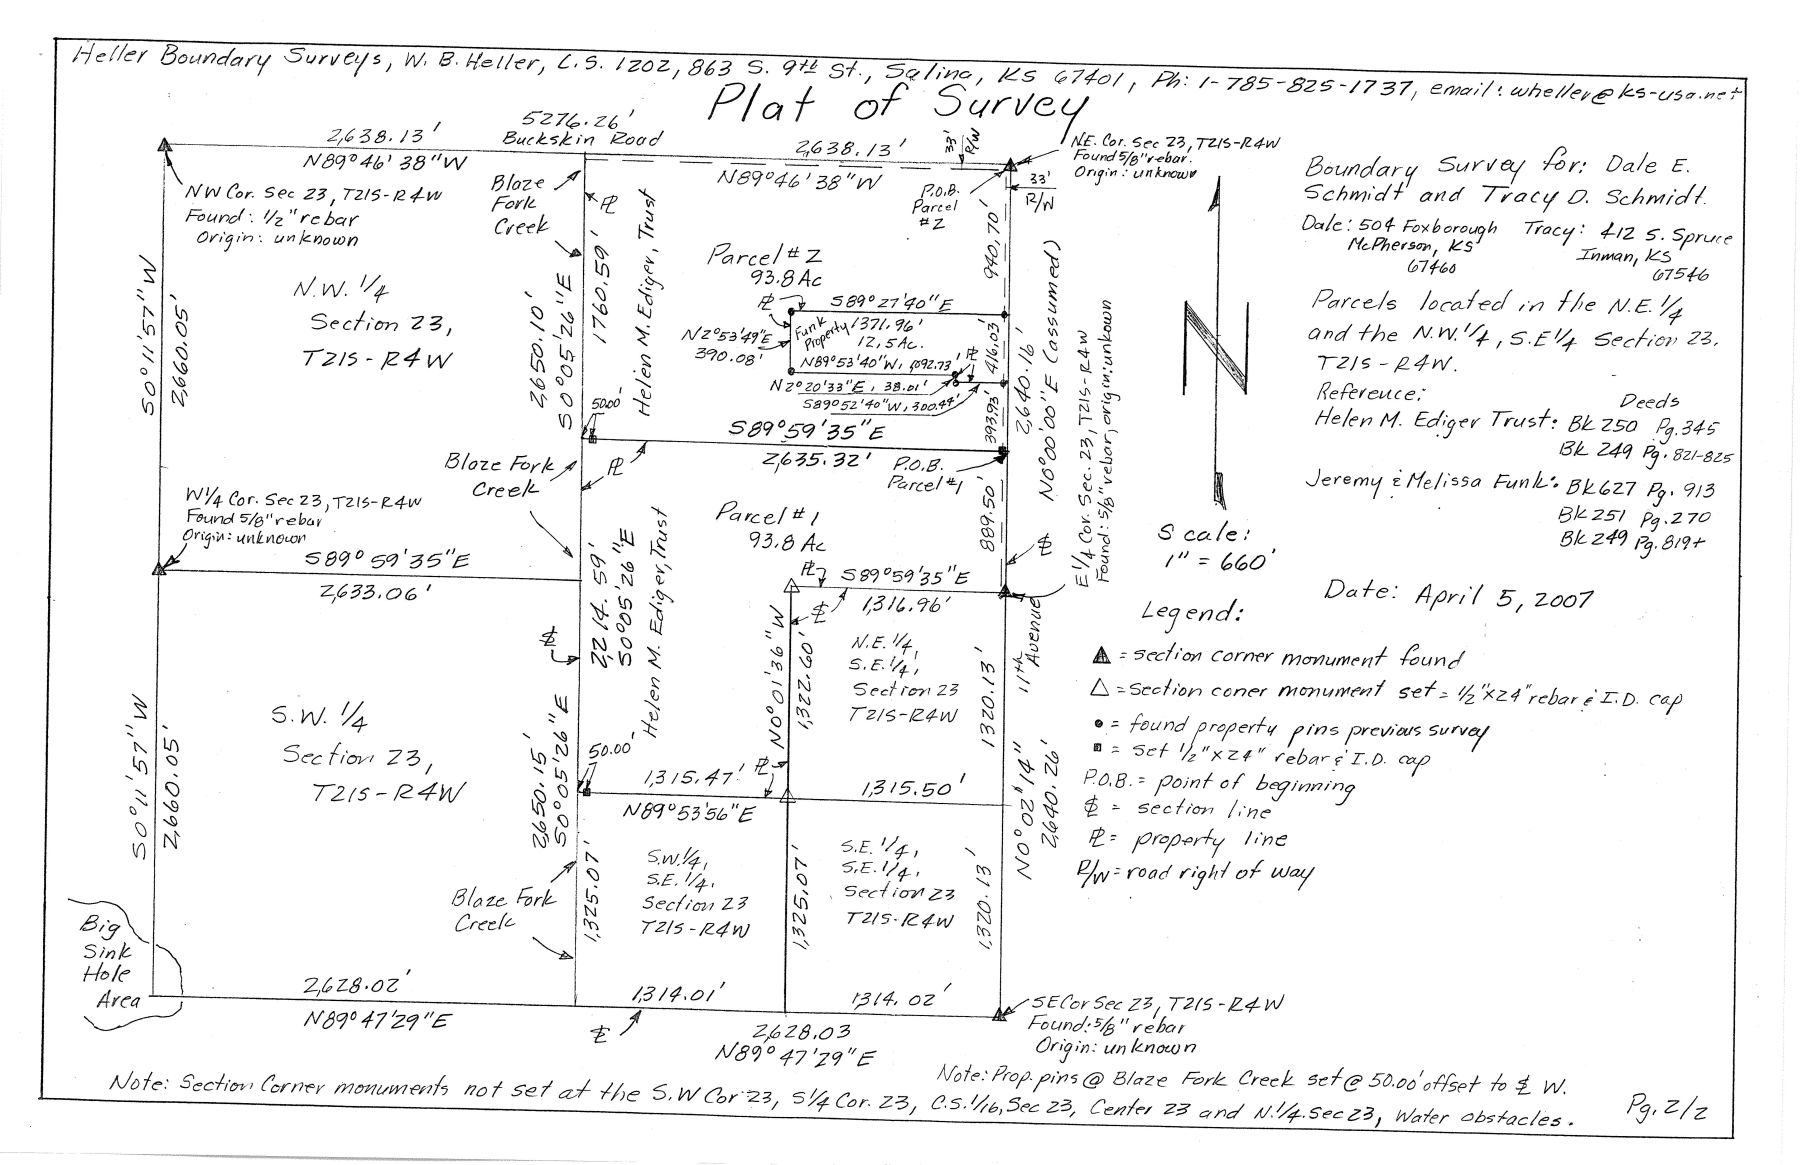 Heller Boundary Surveys, W. B. Heller, L.S. 1202, 863 S. 9th St., Salina, KS 67401, Ph: 1-785-825-1737, email: wheller@ks-usa.net
Plat of Survey
5276.26'
2,638.13' Buckskin Road 2,638.13'
N89°46'38"W
N89°46'38"W
33'
R/W
N.E. Cor. Sec 23, T21S-R4W
Found 5/8" rebar.
Origin: unknown
NW Cor. Sec 23, T21S-R4W
Found: 1/2" rebar
Origin: unknown
Blaze
Fork
Creek
PL
P.O.B.
Parcel
#2
33'
R/W
Boundary Survey for: Dale E.
Schmidt and Tracy D. Schmidt.
Dale: 504 Foxborough
McPherson, KS
67460
Tracy: 412 S. Spruce
Inman, KS
67546
Parcels located in the N.E. 1/4
and the N.W. 1/4, S.E 1/4 Section 23,
T21S-R4W.
Reference:
Deeds
Helen M. Ediger Trust: Bk 250 Pg. 345
Bk 249 Pg. 821-825
Jeremy & Melissa Funk: Bk 627 Pg. 913
Bk 251 Pg. 270
Bk 249 Pg. 819+
Date: April 5, 2007
N
Scale:
1" = 660'
N.W. 1/4
Section 23,
T21S-R4W
S0°11'57"W
2,660.05'
2,650.10'
S0°05'26"E
1760.59'
Helen M. Ediger, Trust
Parcel #2
93.8 Ac
PL
S89°27'40"E
1371.96'
12.5 Ac.
Funk
Property
N2°53'49"E
390.08'
N89°53'40"W, 1092.73'
PL
N2°20'33"E, 38.01'
S89°52'40"W, 300.44'
940.70'
416.03'
393.93'
2,640.16'
N0°00'00"E (assumed)
50.00'
S89°59'35"E
2,635.32'
P.O.B.
Parcel #1
Blaze Fork
Creek
PL
W1/4 Cor. Sec 23, T21S-R4W
Found 5/8" rebar
Origin: unknown
S89°59'35"E
2,633.06'
Parcel #1
93.8 Ac
889.50'
E 1/4 Cor. Sec. 23, T21S-R4W
Found: 5/8" rebar, origin: unknown
PL
S89°59'35"E
1,316.96'
2,214.59'
S0°05'26"E
Helen M. Ediger, Trust
N0°01'36"W
1,322.60'
N.E. 1/4,
S.E. 1/4,
Section 23
T21S-R4W
11th Avenue
1320.13'
N0°02'14"
2,640.26'
S.W. 1/4
Section 23,
T21S-R4W
S0°11'57"W
2,660.05'
2,650.15'
S0°05'26"E
50.00'
1,315.47'
PL
N89°53'56"E
1,315.50'
Legend:
▲ = section corner monument found
△ = section coner monument set = 1/2"x24" rebar & I.D. cap
● = found property pins previous survey
■ = set 1/2"x24" rebar & I.D. cap
P.O.B. = point of beginning
℄ = section line
PL = property line
R/W = road right of way
Blaze Fork
Creek
1,325.07'
S.W. 1/4,
S.E. 1/4,
Section 23
T21S-R4W
1,325.07'
S.E. 1/4,
S.E. 1/4,
Section 23
T21S-R4W
1,320.13'
Big
Sink
Hole
Area
2,628.02'
N89°47'29"E
1,314.01'
1314.02'
2,628.03
N89°47'29"E
SE Cor Sec 23, T21S-R4W
Found: 5/8" rebar
Origin: unknown
Note: Prop. pins @ Blaze Fork Creek set @ 50.00' offset to ℄ W.
Note: Section Corner monuments not set at the S.W Cor 23, S 1/4 Cor. 23, C.S. 1/16, Sec 23, Center 23 and N. 1/4. Sec 23, Water obstacles.
Pg. 2/2